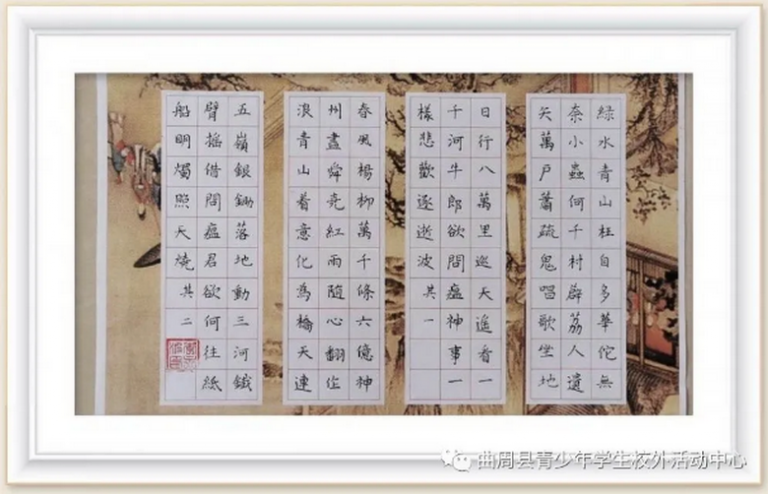 綠水青山枉自多華佗無
奈小蟲何千村薜荔人遺
矢萬戶蕭疏鬼唱歌坐地
日行八萬里巡天遙看一
千河牛郎欲問瘟神事一
樣悲歡逐逝波其一
春風楊柳萬千條六億神
州盡舜堯紅雨隨心翻作
浪青山着意化為橋天連
五嶺銀鋤落地動三河鐵
臂搖借問瘟君欲何往紙
船明燭照天燒其二
曲周县青少年学生校外活动中心